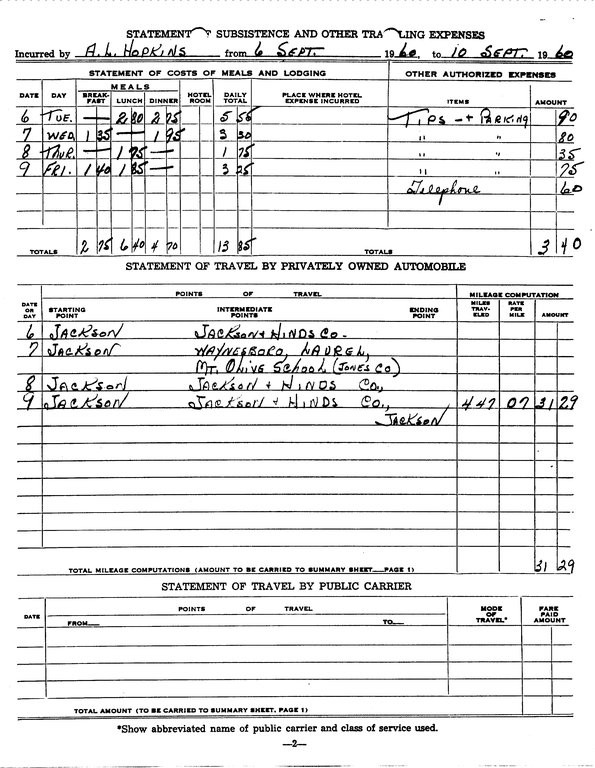 STATEMENT OF SUBSISTENCE AND OTHER TRAVELING EXPENSES
Incurred by A. L. HOPKINS from 6 SEPT. 1960, to 10 SEPT. 1960
STATEMENT OF COSTS OF MEALS AND LODGING OTHER AUTHORIZED EXPENSES
DATE DAY MEALS BREAK-FAST LUNCH DINNER HOTEL ROOM DAILY TOTAL PLACE WHERE HOTEL EXPENSE INCURRED ITEMS AMOUNT
6 TUE. — 2 80 2 75 5 55 TIPS -+ PARKING 90
7 WED. 1 35 — 1 95 3 30 " " 80
8 THUR. — 1 75 — 1 75 " " 35
9 FRI. 1 40 1 85 3 25 " " 75
Telephone 60
TOTALS 2 75 6 40 4 70 13 85 TOTALS 3 40
STATEMENT OF TRAVEL BY PRIVATELY OWNED AUTOMOBILE
POINTS OF TRAVEL MILEAGE COMPUTATION
DATE OR DAY STARTING POINT INTERMEDIATE POINTS ENDING POINT MILES TRAV-ELED RATE PER MILE AMOUNT
6 JACKSON JACKSON + HINDS CO.
7 JACKSON WAYNESBORO, LAUREL,
MT. OLIVE SCHOOL (JONES CO)
8 JACKSON JACKSON + HINDS CO.,
9 JACKSON JACKSON + HINDS CO., 447 07 31 29
JACKSON
TOTAL MILEAGE COMPUTATIONS (AMOUNT TO BE CARRIED TO SUMMARY SHEET—PAGE 1) 31 29
STATEMENT OF TRAVEL BY PUBLIC CARRIER
DATE POINTS OF TRAVEL MODE OF TRAVEL* FARE PAID AMOUNT
FROM— TO—
TOTAL AMOUNT (TO BE CARRIED TO SUMMARY SHEET, PAGE 1)
*Show abbreviated name of public carrier and class of service used.
—2—